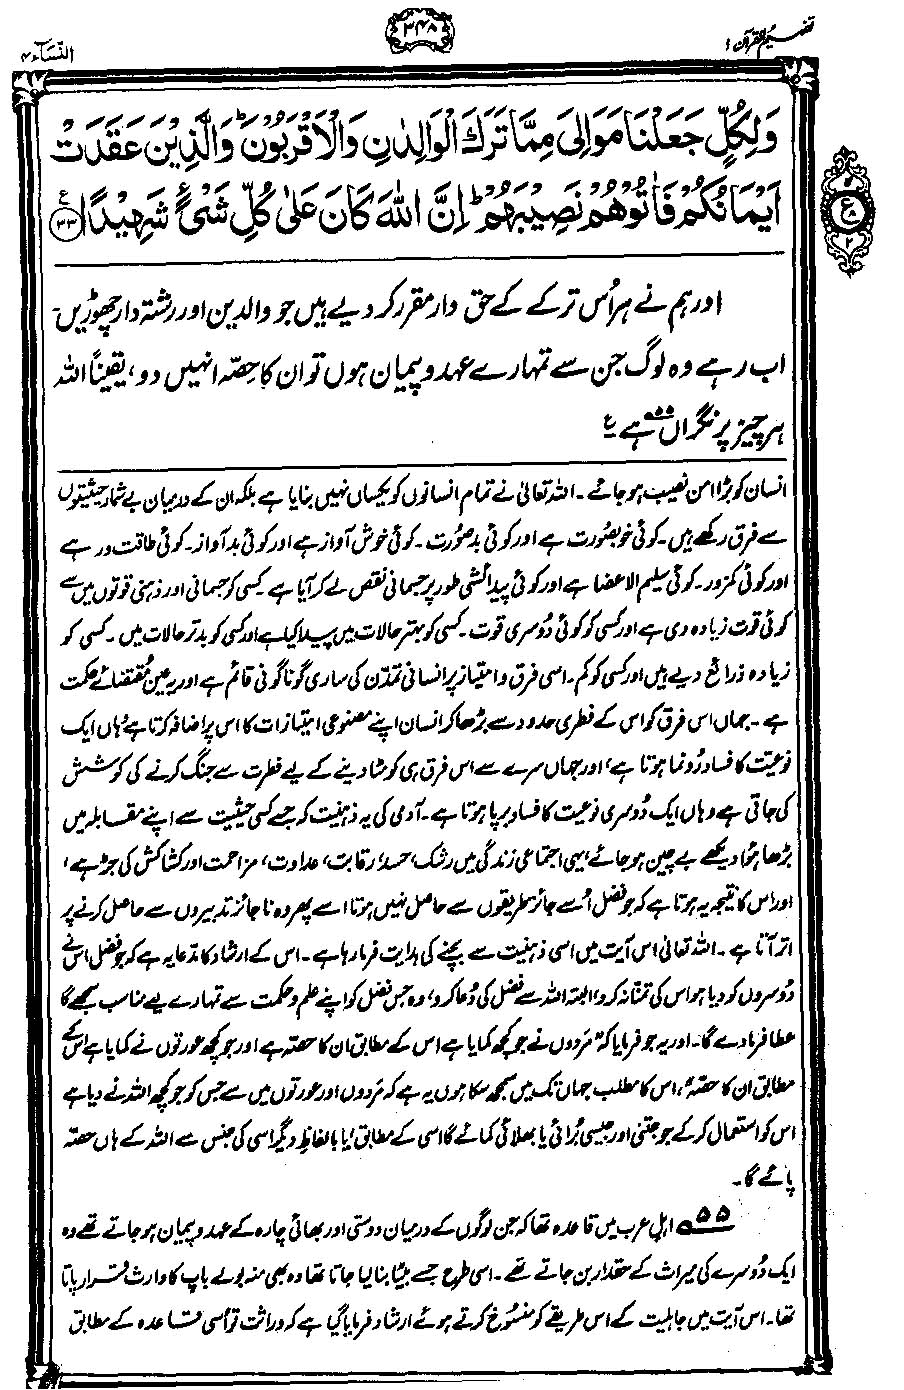 تفہیم القرآن ۱
۳۴۸
النِّسَآء ۴
وَلِكُلٍّ جَعَلْنَا مَوَالِیَ مِمَّا تَرَكَ الْوَالِدٰنِ وَالْاَقْرَبُوْنَ ؕ وَالَّذِیْنَ عَقَدَتْ
اَیْمَانُكُمْ فَاٰتُوْهُمْ نَصِیْبَهُمْ ؕ اِنَّ اللّٰهَ كَانَ عَلٰی كُلِّ شَیْءٍ شَهِیْدًا ﴿۳۳﴾ ع
ع ۸ ۲
اور ہم نے ہر اُس ترکے کے حق دار مقرر کر دیے ہیں جو والدین اور رشتہ دار چھوڑیں۔
اب رہے وہ لوگ جن سے تمہارے عہد و پیمان ہوں تو ان کا حِصّہ انہیں دو، یقیناً اللہ
ہر چیز پر نگراں ہے۔ ۵۵ ع
انسان کو بڑا امن نصیب ہو جائے۔ اللہ تعالیٰ نے تمام انسانوں کو یکساں نہیں بنایا ہے بلکہ ان کے درمیان بے شمار حیثیتوں
سے فرق رکھے ہیں۔ کوئی خوبصُورت ہے اور کوئی بدصُورت۔ کوئی خوش آواز ہے اور کوئی بد آواز۔ کوئی طاقت ور ہے
اور کوئی کمزور۔ کوئی سلیم الاعضا ہے اور کوئی پیدائشی طور پر جسمانی نقص لے کر آیا ہے۔ کسی کو جسمانی اور ذہنی قوتوں میں سے
کوئی قوت زیادہ دی ہے اور کسی کو کوئی دُوسری قوت۔ کسی کو بہتر حالات میں پیدا کیا ہے اور کسی کو بدتر حالات میں۔ کسی کو
زیادہ ذرائع دیے ہیں اور کسی کو کم۔ اسی فرق و امتیاز پر انسانی تمدّن کی ساری گوناگونی قائم ہے اور یہ عین مُقتضائے حکمت
ہے۔ جہاں اس فرق کو اس کے فطری حدود سے بڑھا کر انسان اپنے مصنوعی امتیازات کا اس پر اضافہ کرتا ہے وہاں ایک
نوعیت کا فساد رُونما ہوتا ہے، اور جہاں سرے سے اس فرق ہی کو مٹا دینے کے لیے فطرت سے جنگ کرنے کی کوشش
کی جاتی ہے وہاں ایک دُوسری نوعیت کا فساد برپا ہوتا ہے۔ آدمی کی یہ ذہنیت کہ جسے کسی حیثیت سے اپنے مقابلہ میں
بڑھا ہُوا دیکھے بے چین ہو جائے، یہی اجتماعی زندگی میں رشک، حسد، رقابت، عداوت، مزاحمت اور کشاکش کی جڑ ہے،
اور اس کا نتیجہ یہ ہوتا ہے کہ جو فضل اُسے جائز طریقوں سے حاصل نہیں ہوتا اسے پھر وہ ناجائز تدبیروں سے حاصل کرنے پر
اتر آتا ہے۔ اللہ تعالیٰ اس آیت میں اسی ذہنیت سے بچنے کی ہدایت فرما رہا ہے۔ اس کے ارشاد کا مدعا یہ ہے کہ جو فضل اس نے
دُوسروں کو دیا ہو اس کی تمنّا نہ کرو، البتہ اللہ سے فضل کی دُعا کرو، وہ جس فضل کو اپنے علم و حکمت سے تمہارے لیے مناسب سمجھے گا
عطا فرما دے گا۔ اور یہ جو فرمایا کہ ”مَردوں نے جو کچھ کمایا ہے اس کے مطابق ان کا حصّہ ہے اور جو کچھ عورتوں نے کمایا ہے اس کے
مطابق ان کا حصّہ“، اس کا مطلب جہاں تک میں سمجھ سکا ہوں یہ ہے کہ مَردوں اور عورتوں میں سے جس کو جو کچھ اللہ نے دیا ہے
اس کو استعمال کر کے جو جتنی اور جیسی بُرائی یا بھلائی کمائے گا اسی کے مطابق، یا بالفاظِ دیگر اسی کی جنس سے اللہ کے ہاں حصّہ
پائے گا۔
۵۵ اہلِ عرب میں قاعدہ تھا کہ جن لوگوں کے درمیان دوستی اور بھائی چارہ کے عہد و پیمان ہو جاتے تھے وہ
ایک دُوسرے کی میراث کے حقدار بن جاتے تھے۔ اسی طرح جسے بیٹا بنا لیا جاتا تھا وہ بھی منہ بولے باپ کا وارث قرار پاتا
تھا۔ اس آیت میں جاہلیت کے اس طریقے کو منسُوخ کرتے ہوئے ارشاد فرمایا گیا ہے کہ وراثت تو اُسی قاعدہ کے مطابق